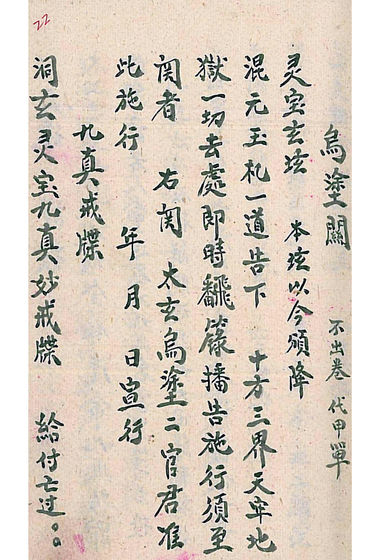 22
烏塗關 不出卷 代甲單
灵宝玄坛 本坛以今頒降
混元玉札一道告下 十方三界天牢地
獄一切去處即時飜籙播告施行須至
関者 右関 太玄烏塗二官君准
此施行 年 月 日宣行
九真戒牒
洞玄灵宝九真妙戒牒 給付亡过